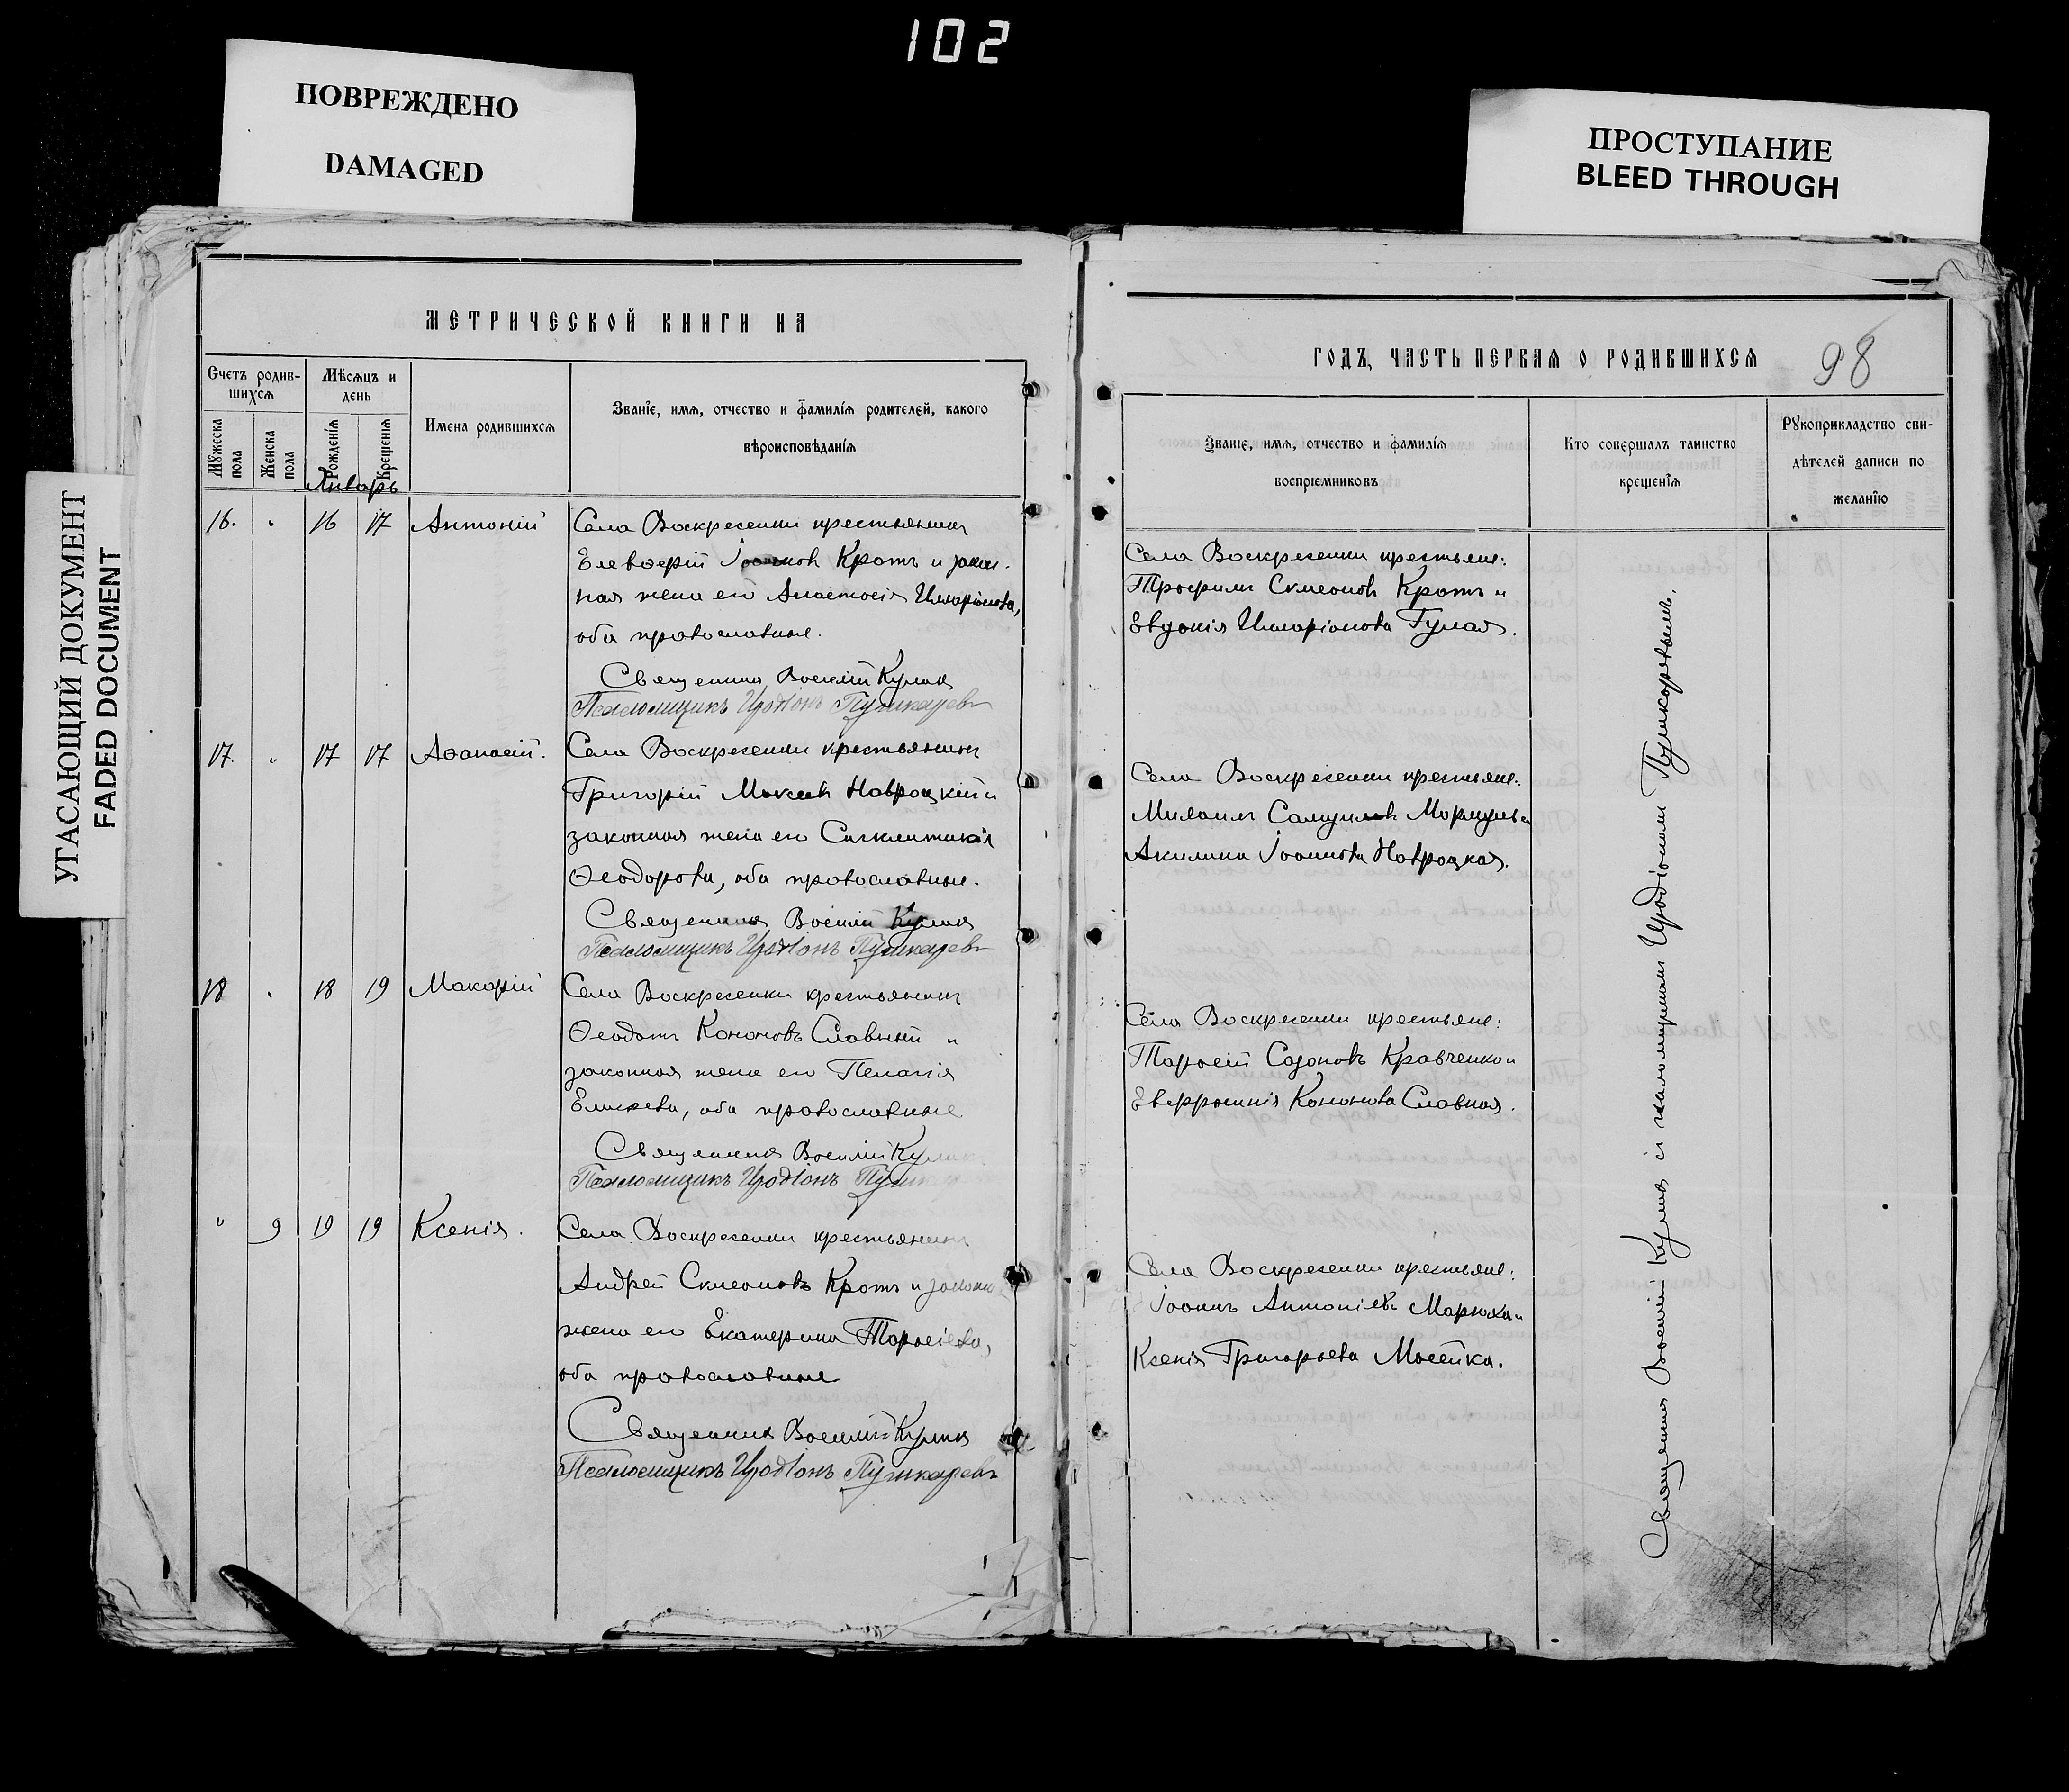 102
ПОВРЕЖДЕНО
DAMAGED
ПРОСТУПАНИЕ
BLEED THROUGH
УГАСАЮЩИЙ ДОКУМЕНТ
FADED DOCUMENT
МЕТРИЧЕСКОЙ КНИГИ НА
Счетъ родив-
шихся
Мѣсяцъ и
день
Мужеска
пола
Женска
пола
Рожденія
Крещенія
Имена родившихся
Званіе, имя, отчество и фамилія родителей, какого
вѣроисповѣданія
Январь
16. " 16 17 Антоній
Села Воскресенки крестьянинъ
Елевѳерій Іоанновъ Кротъ и закон.
ная жена его Анастасія Иларіонова,
оба православные.
Священникъ Василій Куликъ
Псаломщикъ Иродіонъ Пушкаревъ
17. " 17 17 Аѳанасій.
Села Воскресенки крестьянинъ
Григорій Навроцкій и
законная жена его Синклитикія
Ѳеодорова, оба православные.
Священникъ Василій Куликъ
Псаломщикъ Иродіонъ Пушкаревъ
18 " 18 19 Макарій
Села Воскресенки крестьянинъ
Ѳеодотъ Кононовъ Славный и
законная жена его Пелагія
оба православные
Священникъ Василій Куликъ
Псаломщикъ Иродіонъ Пушкар
" 9 19 19 Ксенія.
Села Воскресенки крестьянинъ
Андрей Симеоновъ Кротъ и законн
жена его Екатерина Тарасіева,
оба православные
Священникъ Василій Куликъ
Псаломщикъ Иродіонъ Пушкаревъ
ГОДЪ, ЧАСТЬ ПЕРВАЯ О РОДИВШИХСЯ
98
Званіе, имя, отчество и фамилія
воспріемниковъ
Кто совершалъ таинство
крещенія
Рукоприкладство сви-
дѣтелей записи по
желанію
Села Воскресенки крестьяне:
Трофимъ Симеоновъ Кротъ и
Евдокія Иларіонова Гулая.
Села Воскресенки крестьяне:
Михаилъ Самуиловъ и
Акилина Іоаннова Навроцкая.
Села Воскресенки крестьяне:
Тарасій Созоновъ Кравченко и
Евфросинія Кононова Славная.
Села Воскресенки крестьяне:
Іоаннъ Антоніевъ Марюха и
Ксенія Григорьева Мосейка.
Священникъ Василій Куликъ съ псаломщикомъ Иродіономъ Пушкаревымъ.